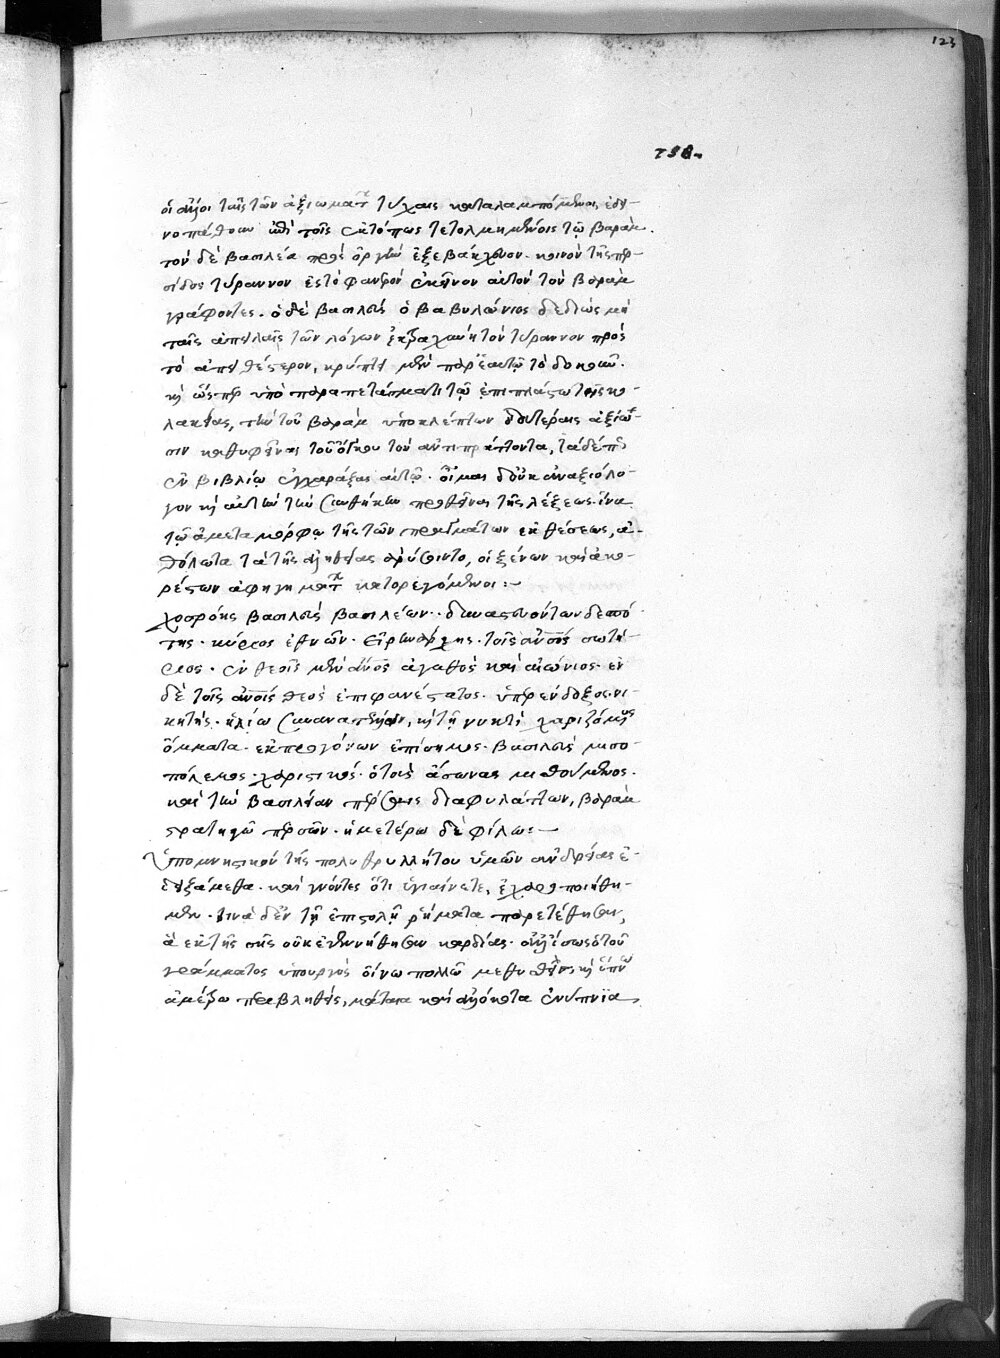 123
οἱ δῆλοι ταῖς τῶν ἀξιωμάτ τύχαις καταλαμπόμενοι, ἐδυ-
σπάθουν ἐπὶ τοῖς ἐκτόπως τετολμημένοις τῷ βαράμ.
τὸν δὲ βασιλέα πρὸς ὀργὴν ἐξεβάκχευον. κοινὸν τῆς περ-
σίδος τύραννον ἐστεφανοῦν ἐκεῖνον αὐτὸν τὸν βαρὰμ
γράφοντες. ὁ δὲ βασιλεὺς ὁ βαβυλώνιος δεδιὼς μὴ
ταῖς ἀπειλαῖς τῶν λόγων ἐκτραχύνῃ τὸν τύραννον πρὸς
τὸ ἀπειθέστερον, κρύπτει μὲν παρ' ἑαυτῷ τὸ δοκοῦν.
κὴ ὥσπερ ὑπὸ παραπετάσματι τῷ ἐπιπλάστῳ τῆς κο-
λακείας, τὴν τοῦ βαρὰμ ὑποκλέπτων δευτέραις ἀξιώ-
σιν καθυφεῖναι τοῦ ὄγκου τὸν ἀντιπράττοντα, τάδε πως
ἐν βιβλίῳ ἐγχαράξας αὐτῷ. οἶμαι δ' οὐκ ἀναξιόλο-
γον κὴ αὐτὴν τὴν συνθήκην προθεῖναι τῆς λέξεως. ἵνα
τῷ ἀμεταμόρφῳ τῆς τῶν πραγμάτων ἐκθέσεως, ἀ-
θόλωτα τὰ τῆς ἀληθείας ἀρύοιντο, οἱ ξένων καὶ ἀκο-
ρέστων ἀφηγημάτ κατορεγόμενοι:-
χοσρόης βασιλεὺς βασιλέων. δυναστευόντων δεσπό-
της. κύριος ἐθνῶν. εἰρηνάρχης. τοῖς ἀνοις σωτή-
ριος. ἐν θεοῖς μὲν ἄνος ἀγαθὸς καὶ αἰώνιος. ἐν
δὲ τοῖς ἀνοις θεὸς ἐπιφανέστατος. ὑπερένδοξος. νι-
κητής. ἡλίῳ συνανατέλλων, κὴ τῇ νυκτὶ χαριζόμενος
ὄμματα. ἐκ προγόνων ἐπίσημος. βασιλεὺς μισο-
πόλεμος. χαριστικός. ὁ τοὺς ἄσωνας μισθούμενος.
καὶ τὴν βασιλείαν πέρσαις διαφυλάττων, βαρὰμ
στρατηγῷ περσῶν. ἡμετέρω δὲ φίλω:—
ὑπομνηστικὸν τῆς πολυθρυλλήτου ὑμῶν ἀνδρείας ἐ-
δεξάμεθα. καὶ γνόντες ὅτι ὑγιαίνετε, ἐχαροποιήθη-
μεν. τινὰ δὲ ἐν τῇ ἐπιστολῇ ῥήματα παρετέθησαν,
ἃ ἐκ τῆς σῆς οὐκ ἐγεννήθησαν καρδίας. ἀλλ' ἴσως ὁ τοῦ
γράμματος ὑπουργὸς οἴνω πολλῶ μεθυσθεὶς κὴ ὕπνω
ἀμέτρω περιβληθεὶς, μάταια καὶ ἀλλόκοτα ἐνύπνια